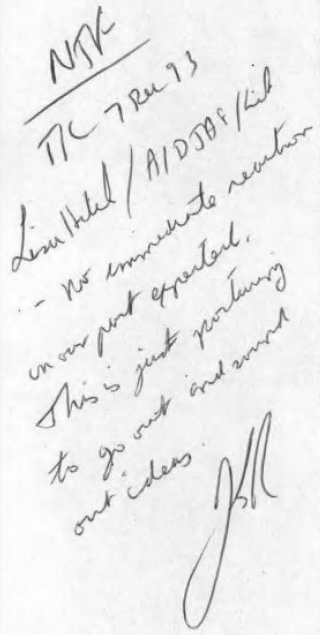 NJK
T/C 7 Dec 93
- no immediate reaction
on our part expected.
This is just posturing
to go out and sound
out ideas.